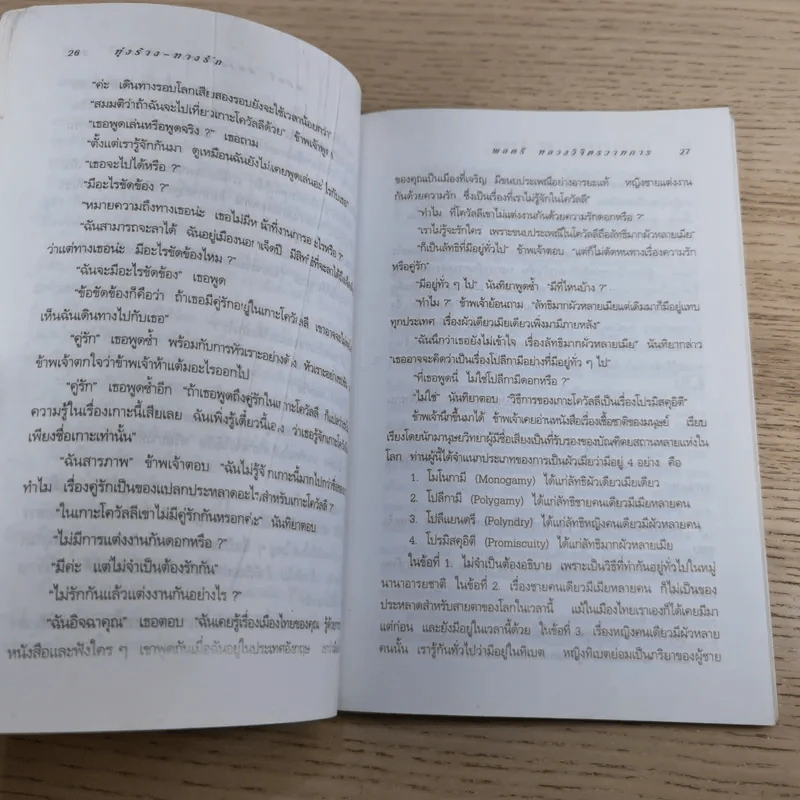 26 ทุ่งร้าง-ทางรัก
"ค่ะ เดินทางรอบโลกเสียสองรอบยังจะใช้เวลาน้อยกว่า"
"สมมติว่าถ้าฉันจะไปเที่ยวเกาะโควัลลีด้วย" ข้าพเจ้าพูด
"เธอพูดเล่นหรือพูดจริง ?" เธอถาม
"ตั้งแต่เรารู้จักกันมา ดูเหมือนฉันยังไม่เคยพูดเล่นอะไรกับเธอ"
"เธอจะไปได้หรือ ?"
"มีอะไรขัดข้อง ?"
"หมายความถึงทางเธอน่ะ เธอไม่มีหน้าที่งานการอะไรหรือ ?"
"ฉันสามารถจะลาได้ ฉันอยู่เมืองนอกเจ็ดปี มีสิทธิ์ที่จะลาได้
ว่าแต่ทางเธอน่ะ มีอะไรขัดข้องไหม ?"
"ฉันจะมีอะไรขัดข้อง" เธอพูด
"ข้อขัดข้องก็คือว่า ถ้าเธอมีคู่รักอยู่ในเกาะโควัลลี เขาอาจจะไม่
เห็นฉันเดินทางไปกับเธอ"
"คู่รัก" เธอพูดซ้ำ พร้อมกับการหัวเราะอย่างดัง หัวเราะอย่าง
ข้าพเจ้าตกใจว่าข้าพเจ้าทำแต้มอะไรออกไป
"คู่รัก" เธอพูดซ้ำอีก "ถ้าเธอพูดถึงคู่รักในเกาะโควัลลี ก็แปลว่า
ความรู้ในเรื่องเกาะนี้เสียเลย ฉันเพิ่งรู้เดี๋ยวนี้เองว่าเธอรู้จักเกาะ
เพียงชื่อเกาะเท่านั้น"
"ฉันสารภาพ" ข้าพเจ้าตอบ "ฉันไม่รู้จักเกาะนี้มากไปกว่า
ทำไม เรื่องคู่รักเป็นของแปลกประหลาดอะไรสำหรับเกาะโควัลลี ?"
"ในเกาะโควัลลีเขาไม่มีคู่รักกันหรอกค่ะ" นันทิยาตอบ
"ไม่มีการแต่งงานกันดอกหรือ ?"
"มีค่ะ แต่ไม่จำเป็นต้องรักกัน"
"ไม่รักกันแล้วแต่งงานกันอย่างไร ?"
"ฉันอิจฉาคุณ" เธอตอบ "ฉันเคยรู้เรื่องเมืองไทยของคุณ รู้
หนังสือและฟังใคร ๆ เขาพูดกันเมื่อฉันอยู่ในประเทศอังกฤษ
พลตรี หลวงวิจิตรวาทการ 27
ของคุณเป็นเมืองที่เจริญ มีขนบประเพณีอย่างอารยะแท้ หญิงชายแต่งงาน
กันด้วยความรัก ซึ่งเป็นเรื่องที่เราไม่รู้จักในโควัลลี"
"ทำไม ที่โควัลลีเขาไม่แต่งงานกันด้วยความรักดอกหรือ ?"
"เราไม่รู้จะรักใคร เพราะขนบประเพณีในโควัลลีถือลัทธิมากผัวหลายเมีย"
"ก็เป็นลัทธิที่มีอยู่ทั่วไป" ข้าพเจ้าตอบ "แต่ก็ไม่ตัดหนทางเรื่องความรัก
หรือคู่รัก"
"มีอยู่ทั่ว ๆ ไป" นันทิยาพูดซ้ำ "มีที่ไหนบ้าง ?"
"ทำไม ?" ข้าพเจ้าย้อนถาม "ลัทธิมากผัวหลายเมียแต่เดิมมาก็มีอยู่แทบ
ทุกประเทศ เรื่องผัวเดียวเมียเดียวเพิ่งมามีภายหลัง"
"ฉันนึกว่าเธอยังไม่เข้าใจ เรื่องลัทธิมากผัวหลายเมีย" นันทิยากล่าว
"เธออาจจะคิดว่าเป็นเรื่องโปลีกามีอย่างที่มีอยู่ทั่ว ๆ ไป"
"ที่เธอพูดนี่ ไม่ใช่โปลีกามีดอกหรือ ?"
"ไม่ใช่" นันทิยาตอบ "วิธีการของเกาะโควัลลีเป็นเรื่องโปรมิสคุอิตี"
ข้าพเจ้านึกขึ้นมาได้ ข้าพเจ้าเคยอ่านหนังสือเรื่องเชื้อชาติของมนุษย์ เรียบ
เรียงโดยนักมานุษยวิทยาผู้มีชื่อเสียงเป็นที่รับรองของบัณฑิตยสถานหลายแห่งใน
โลก ท่านผู้นี้ได้จำแนกประเภทของการเป็นผัวเมียว่ามีอยู่ 4 อย่าง คือ
1. โมโนกามี (Monogamy) ได้แก่ลัทธิผัวเดียวเมียเดียว
2. โปลีกามี (Polygamy) ได้แก่ลัทธิชายคนเดียวมีเมียหลายคน
3. โปลีแยนดรี (Polyndry) ได้แก่ลัทธิหญิงคนเดียวมีผัวหลายคน
4. โปรมิสคุอิตี (Promiscuity) ได้แก่ลัทธิมากผัวหลายเมีย
ในข้อที่ 1. ไม่จำเป็นต้องอธิบาย เพราะเป็นวิธีที่ทำกันอยู่ทั่วไปในหมู่
นานาอารยชาติ ในข้อที่ 2. เรื่องชายคนเดียวมีเมียหลายคน ก็ไม่เป็นของ
ประหลาดสำหรับสายตาของโลกในเวลานี้ แม้ในเมืองไทยเราเองก็ได้เคยมีมา
แต่ก่อน และยังมีอยู่ในเวลานี้ด้วย ในข้อที่ 3. เรื่องหญิงคนเดียวมีผัวหลาย
คนนั้น เรารู้กันทั่วไปว่ามีอยู่ในทิเบต หญิงทิเบตย่อมเป็นภริยาของผู้ชาย